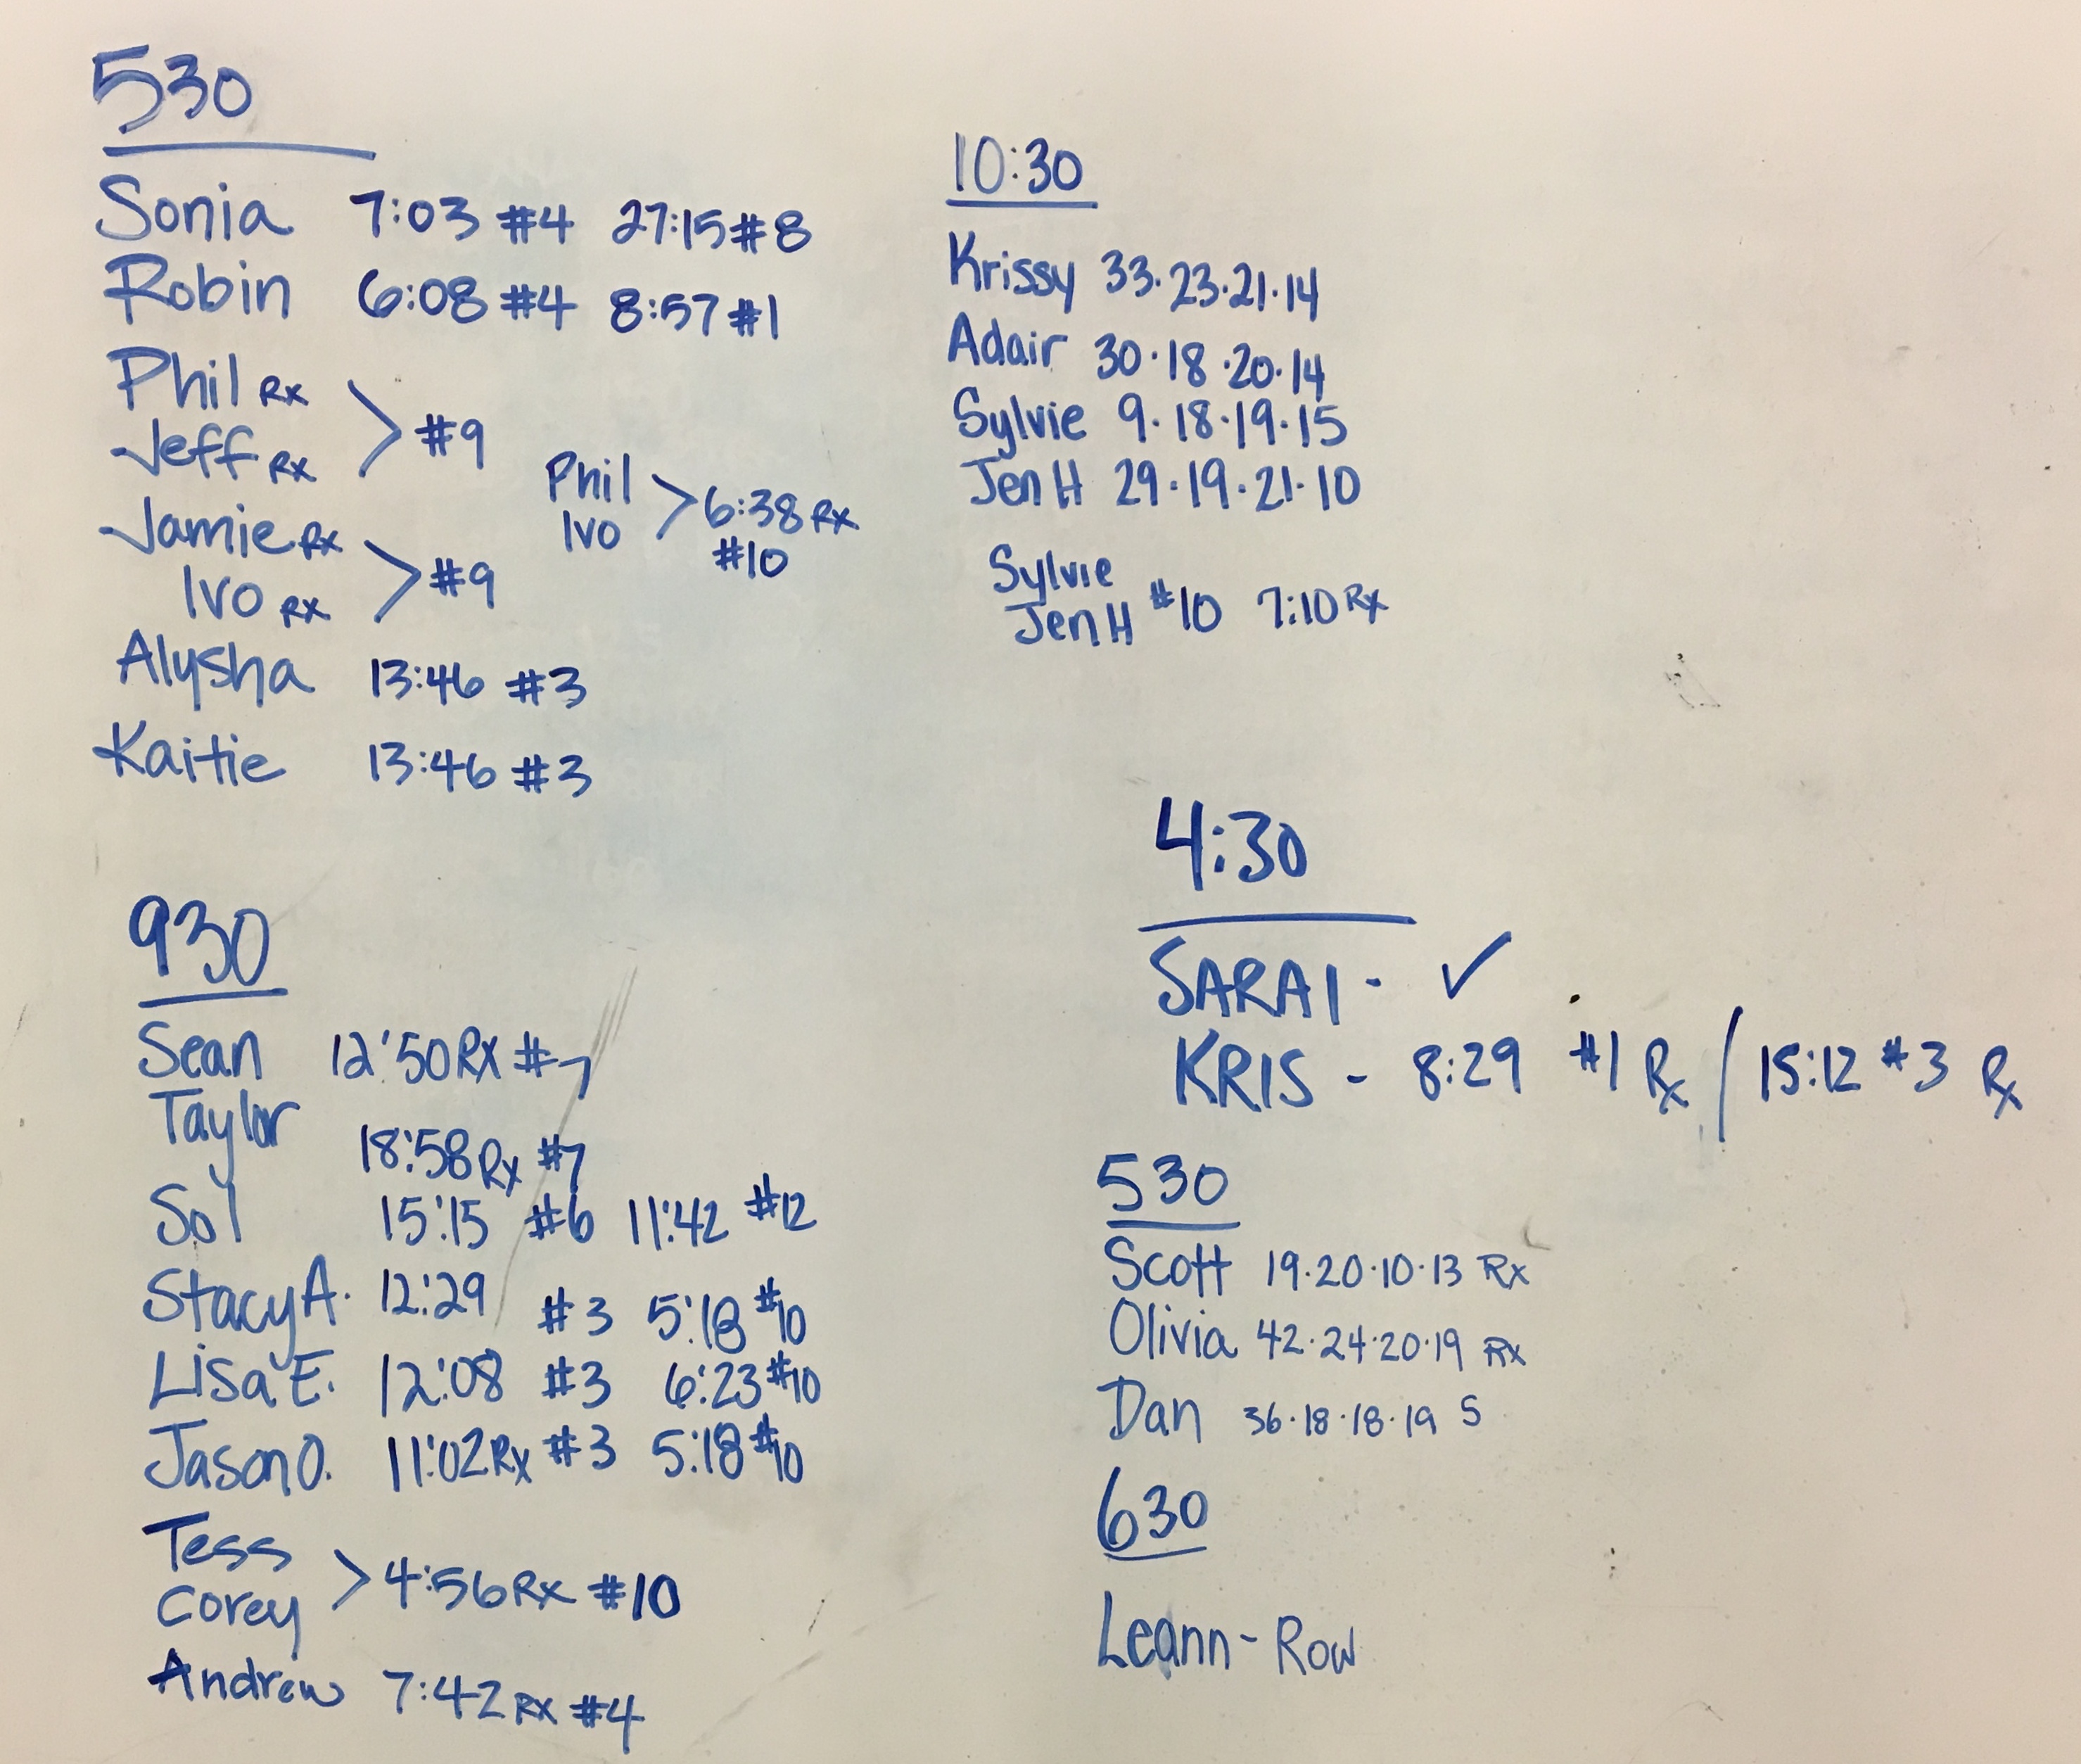 530
Sonia 7:03 #4 27:15 #8
Robin 6:08 #4 8:57 #1
Phil Rx
Jeff Rx > #9
Jamie Rx
Ivo Rx > #9
Phil
Ivo > 6:38 Rx
#10
Alysha 13:46 #3
Kaitie 13:46 #3
930
Sean 12:50 Rx #7
Taylor 18:58 Rx #7
Sol 15:15 #6 11:42 #12
Stacy A. 12:29 #3 5:18 #10
Lisa E. 12:08 #3 6:23 #10
Jason O. 11:02 Rx #3 5:18 #10
Tess
Corey > 4:56 Rx #10
Andrew 7:42 Rx #4
10:30
Krissy 33.23.21.14
Adair 30.18.20.14
Sylvie 9.18.19.15
Jen H 29.19.21.10
Sylvie
Jen H #10 7:10 Rx
4:30
SARAI - ✓
KRIS - 8:29 #1 Rx / 15:12 #3 Rx
530
Scott 19.20.10.13 Rx
Olivia 42.24.20.19 Rx
Dan 36.18.18.19 S
630
Leann - Row